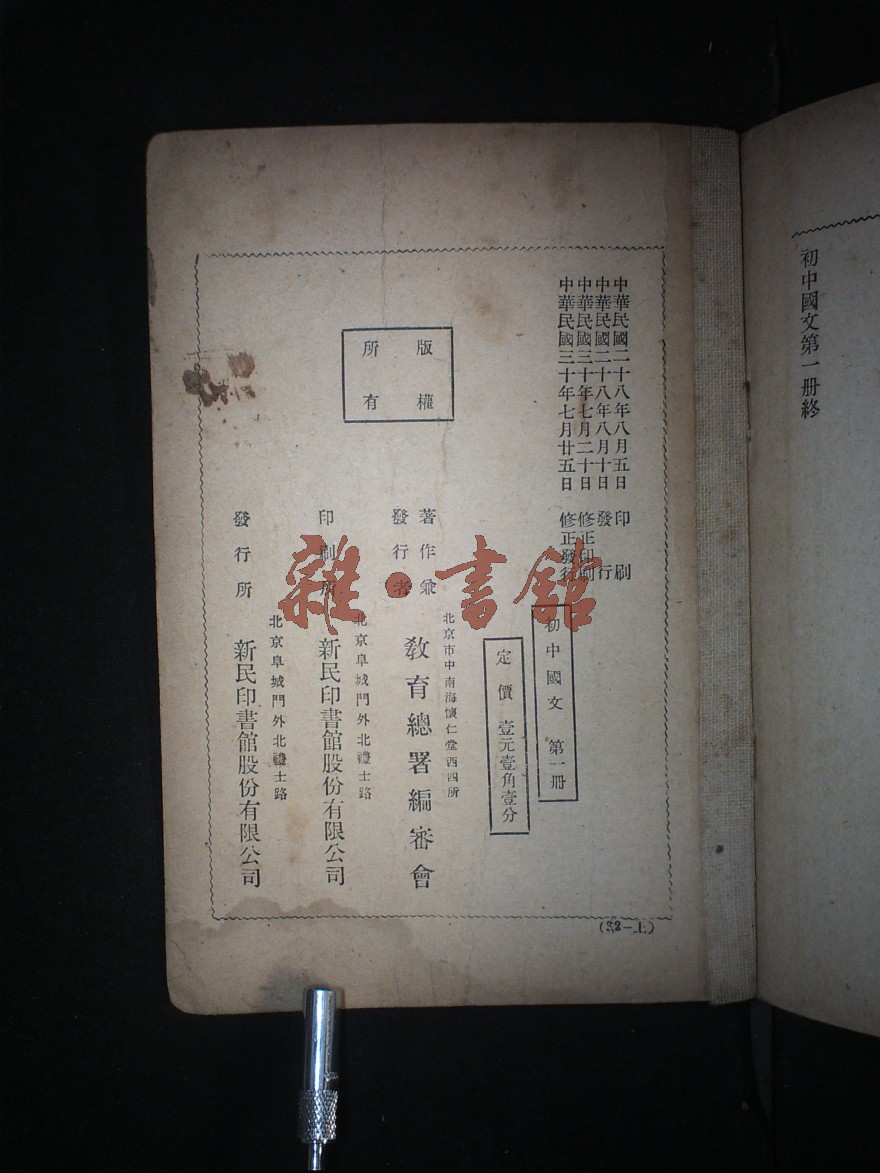 初中國文第一册終
中華民國二十八年八月五日 印刷
中華民國二十八年八月十日 發行
中華民國三十年七月二十日 修正印刷
中華民國三十年七月廿五日 修正發行
初中國文 第一冊
定價 壹元壹角壹分
版權
所有
北京市中南海懷仁堂西四所
著作兼
發行者
教育總署編審會
北京阜城門外北禮士路
印刷所
新民印書館股份有限公司
北京阜城門外北禮士路
發行所 新民印書館股份有限公司
(32-上)
雜·書館